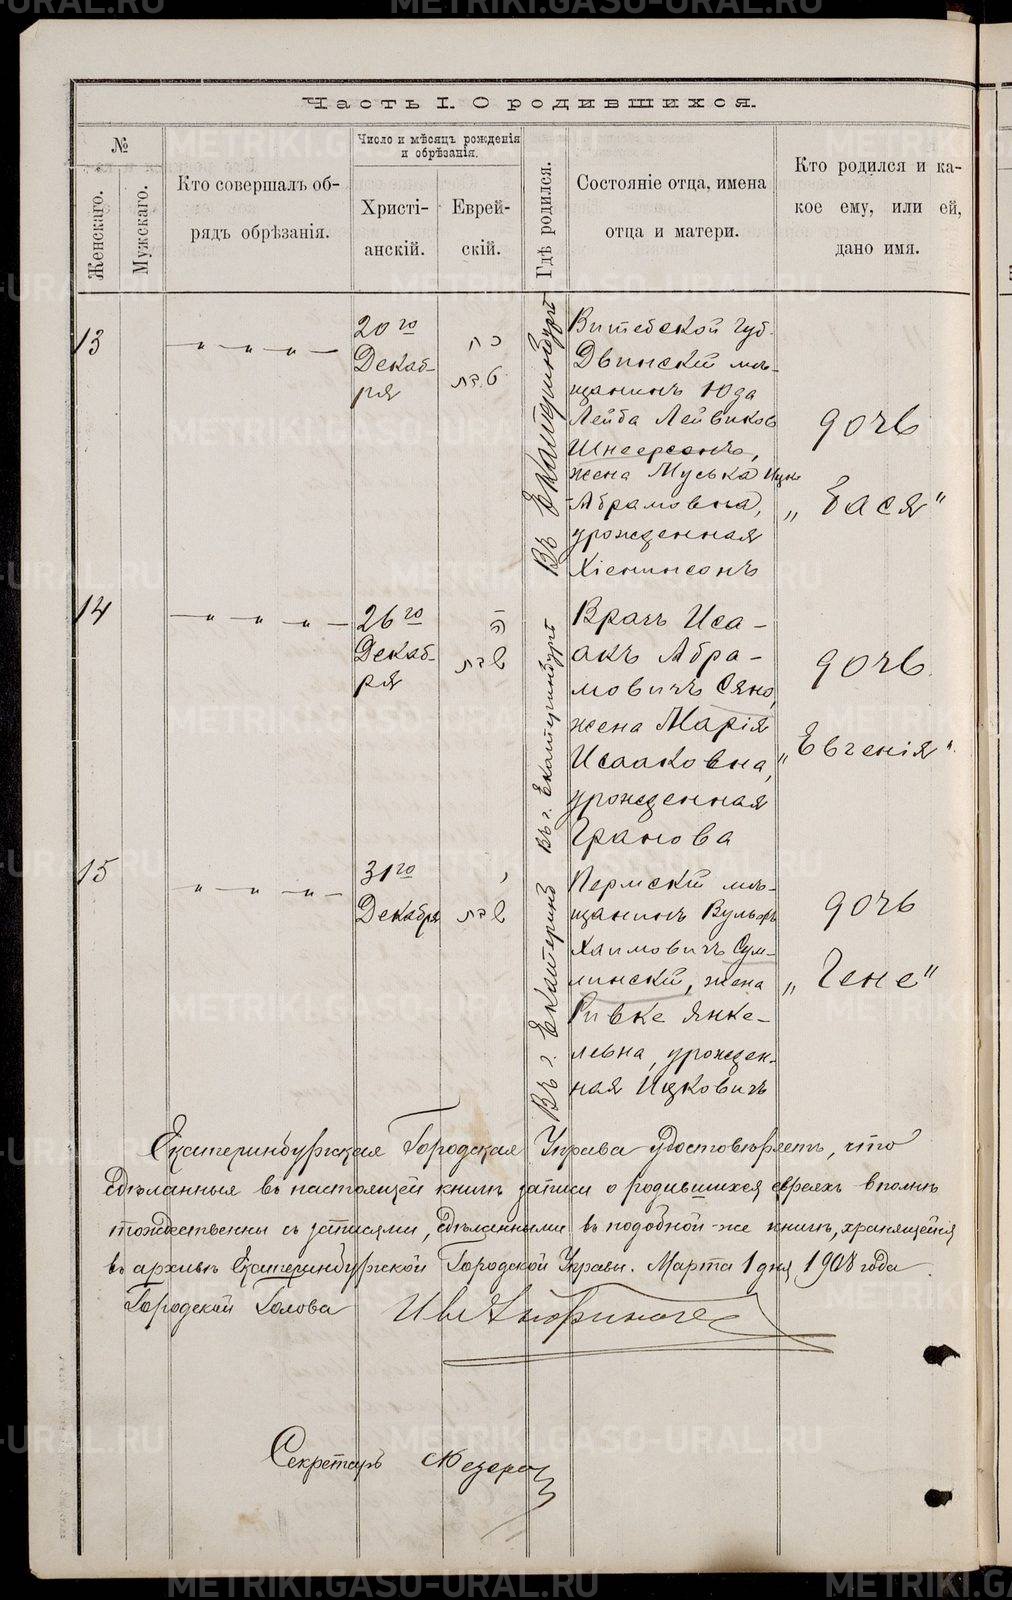 Часть I. О родившихся.
№
Женскаго.
Мужскаго.
Кто совершалъ об-
рядъ обрѣзанія.
Число и мѣсяцъ рожденія
и обрѣзанія.
Христі-
анскій.
Еврей-
скій.
Гдѣ родился.
Состояніе отца, имена
отца и матери.
Кто родился и ка-
кое ему, или ей,
дано имя.
13
20го
Декаб-
ря
כח
טבת
Въ Екатеринбургѣ
Витебской губ.
Двинскій мѣ-
щанинъ Юда
Лейба Лейвиковъ
Шнеерсонъ,
жена Муська
Абрамовна,
урожденная
Хіенинсонъ
дочь
„Бася"
14
26го
Декаб-
ря
ה
שבת
Въ г. Екатеринбургѣ
Врачъ Иса-
акъ Абра-
мовичъ Сяно,
жена Марія
Исааковна,
урожденная
Гранова
дочь.
„Евгенія".
15
31го
Декабря
י
שבת
Въ г. Екатеринб
Пермскій мѣ-
щанинъ Вульфъ
Хаимовичъ Сум-
линскій, жена
Ривке Янке-
левна, урожден-
ная Ицковичъ
дочь
„Гене"
Екатеринбургская Городская Управа удостовѣряетъ, что
сдѣланныя въ настоящей книгѣ записи о родившихся евреяхъ вполнѣ
тождественны съ записями, сдѣланными въ подобной-же книгѣ, хранящейся
въ архивѣ Екатеринбургской Городской Управы. Марта 1 дня 1908 года
Городской Голова
Секретарь
METRIKI.GASO-URAL.RU